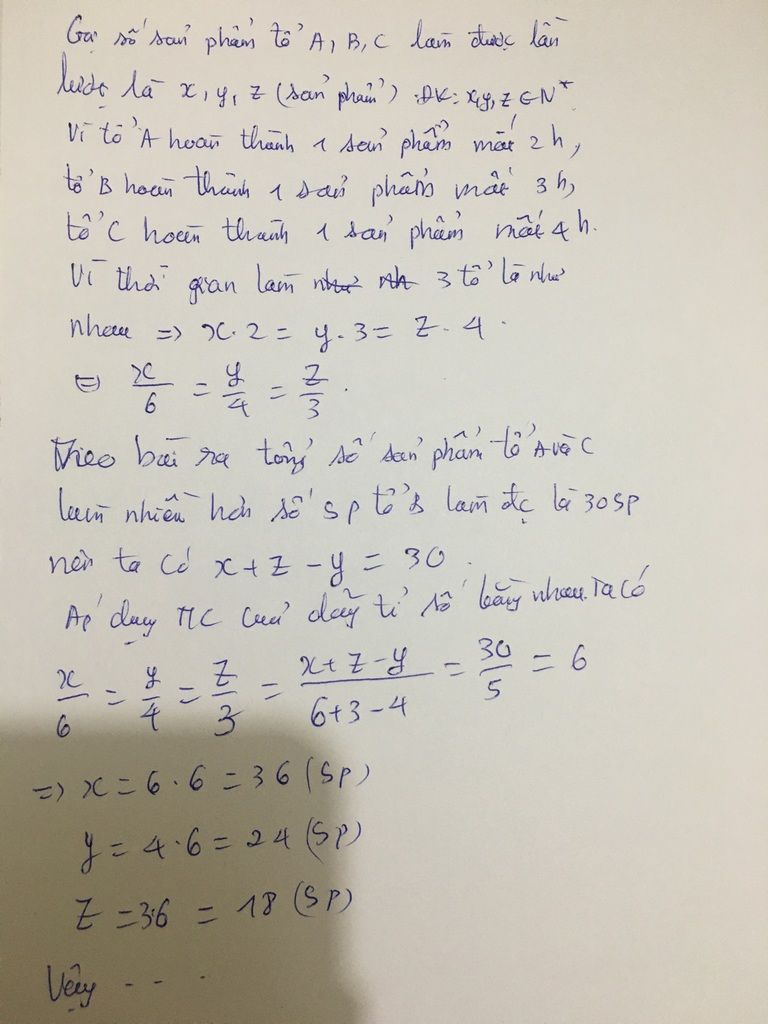 Gọi số sản phẩm tổ A, B, C làm được lần
lượt là x, y, z (sản phẩm) ĐK: x,y,z ∈ N*
Vì tổ A hoàn thành 1 sản phẩm mất 2h,
tổ B hoàn thành 1 sản phẩm mất 3h,
tổ C hoàn thành 1 sản phẩm mất 4h.
Vì thời gian làm 3 tổ là như
nhau => x.2 = y.3 = z.4.
<=> x/6 = y/4 = z/3.
Theo bài ra tổng số sản phẩm tổ A và C
làm nhiều hơn số SP tổ B làm đc là 30SP
nên ta có x + z - y = 30.
Áp dụng TC của dãy tỉ số bằng nhau. Ta có
x/6 = y/4 = z/3 = (x+z-y)/(6+3-4) = 30/5 = 6
=> x = 6.6 = 36 (SP)
y = 4.6 = 24 (SP)
z = 3.6 = 18 (SP)
Vậy ...